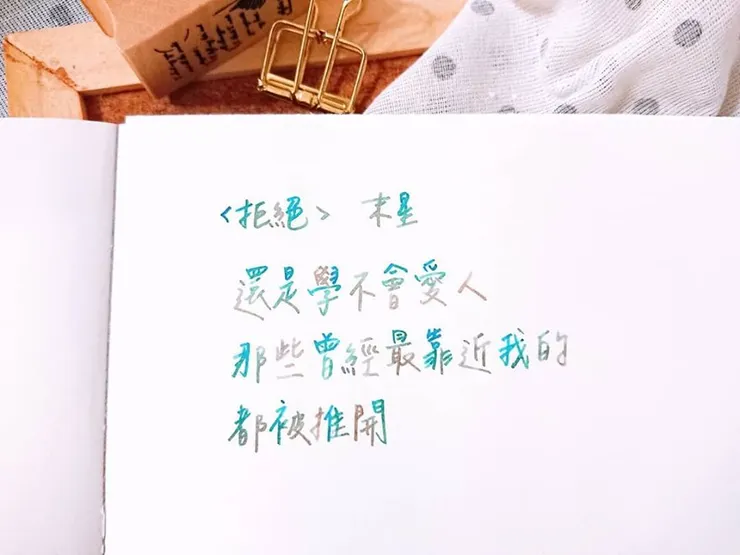 <拒絕> 末星
還是學不會愛人
那些曾經最靠近我的
都被推開